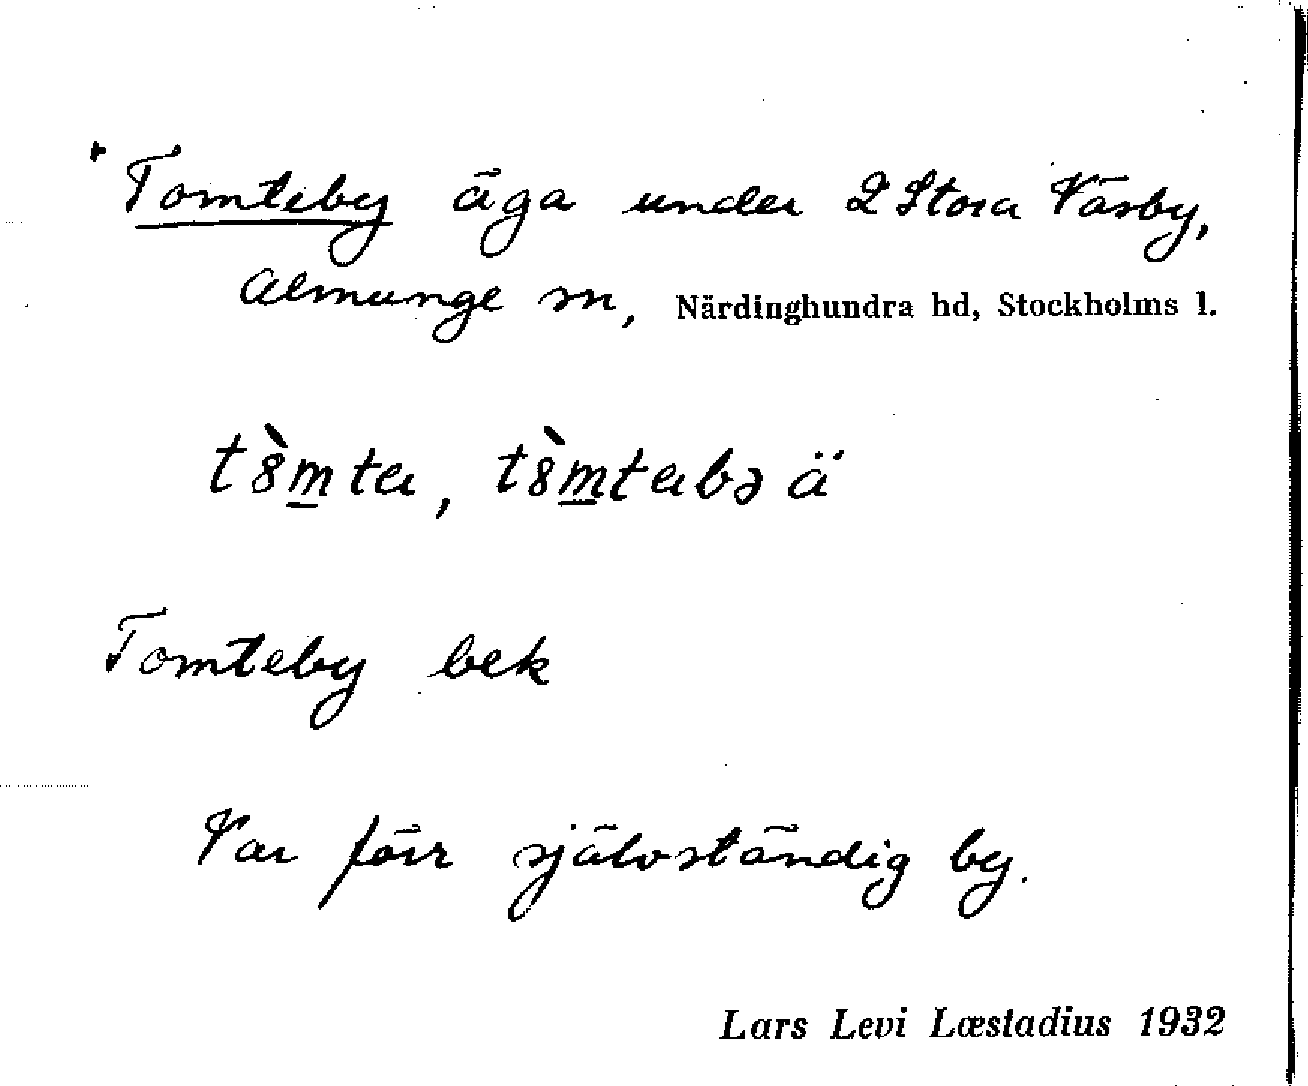 Tomteby äga under 2 Stora Väsby,
Almunge sn, Närdinghundra hd, Stockholms l.
Tomteby bek
Var förr självständig by.
Lars Levi Læstadius 1932